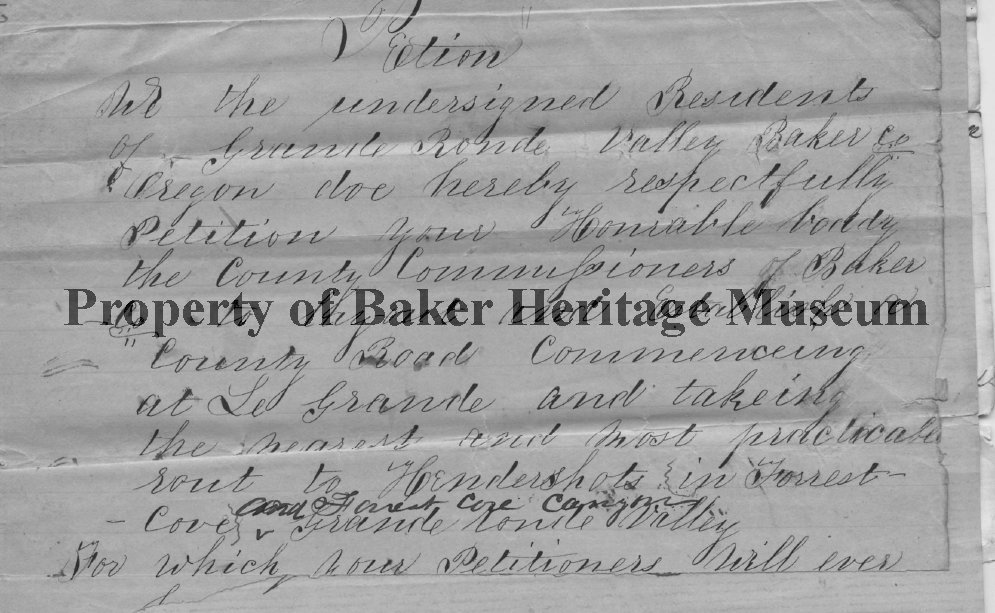 Petion
We the undersigned Residents
of Grande Ronde Valley Baker Co
Oregon doe hereby respectfully
Petition your Honrable boddy
the County Commissioners of Baker
Co to grant and Establish a
Property of Baker Heritage Museum
County Road Commenceing
at Le Grande and takeing
the nearest and most practicable
rout to Hendershots in Forrest
and Forrest cove canyon
Cove Grande Ronde Valley
For which your Petitioners Will ever